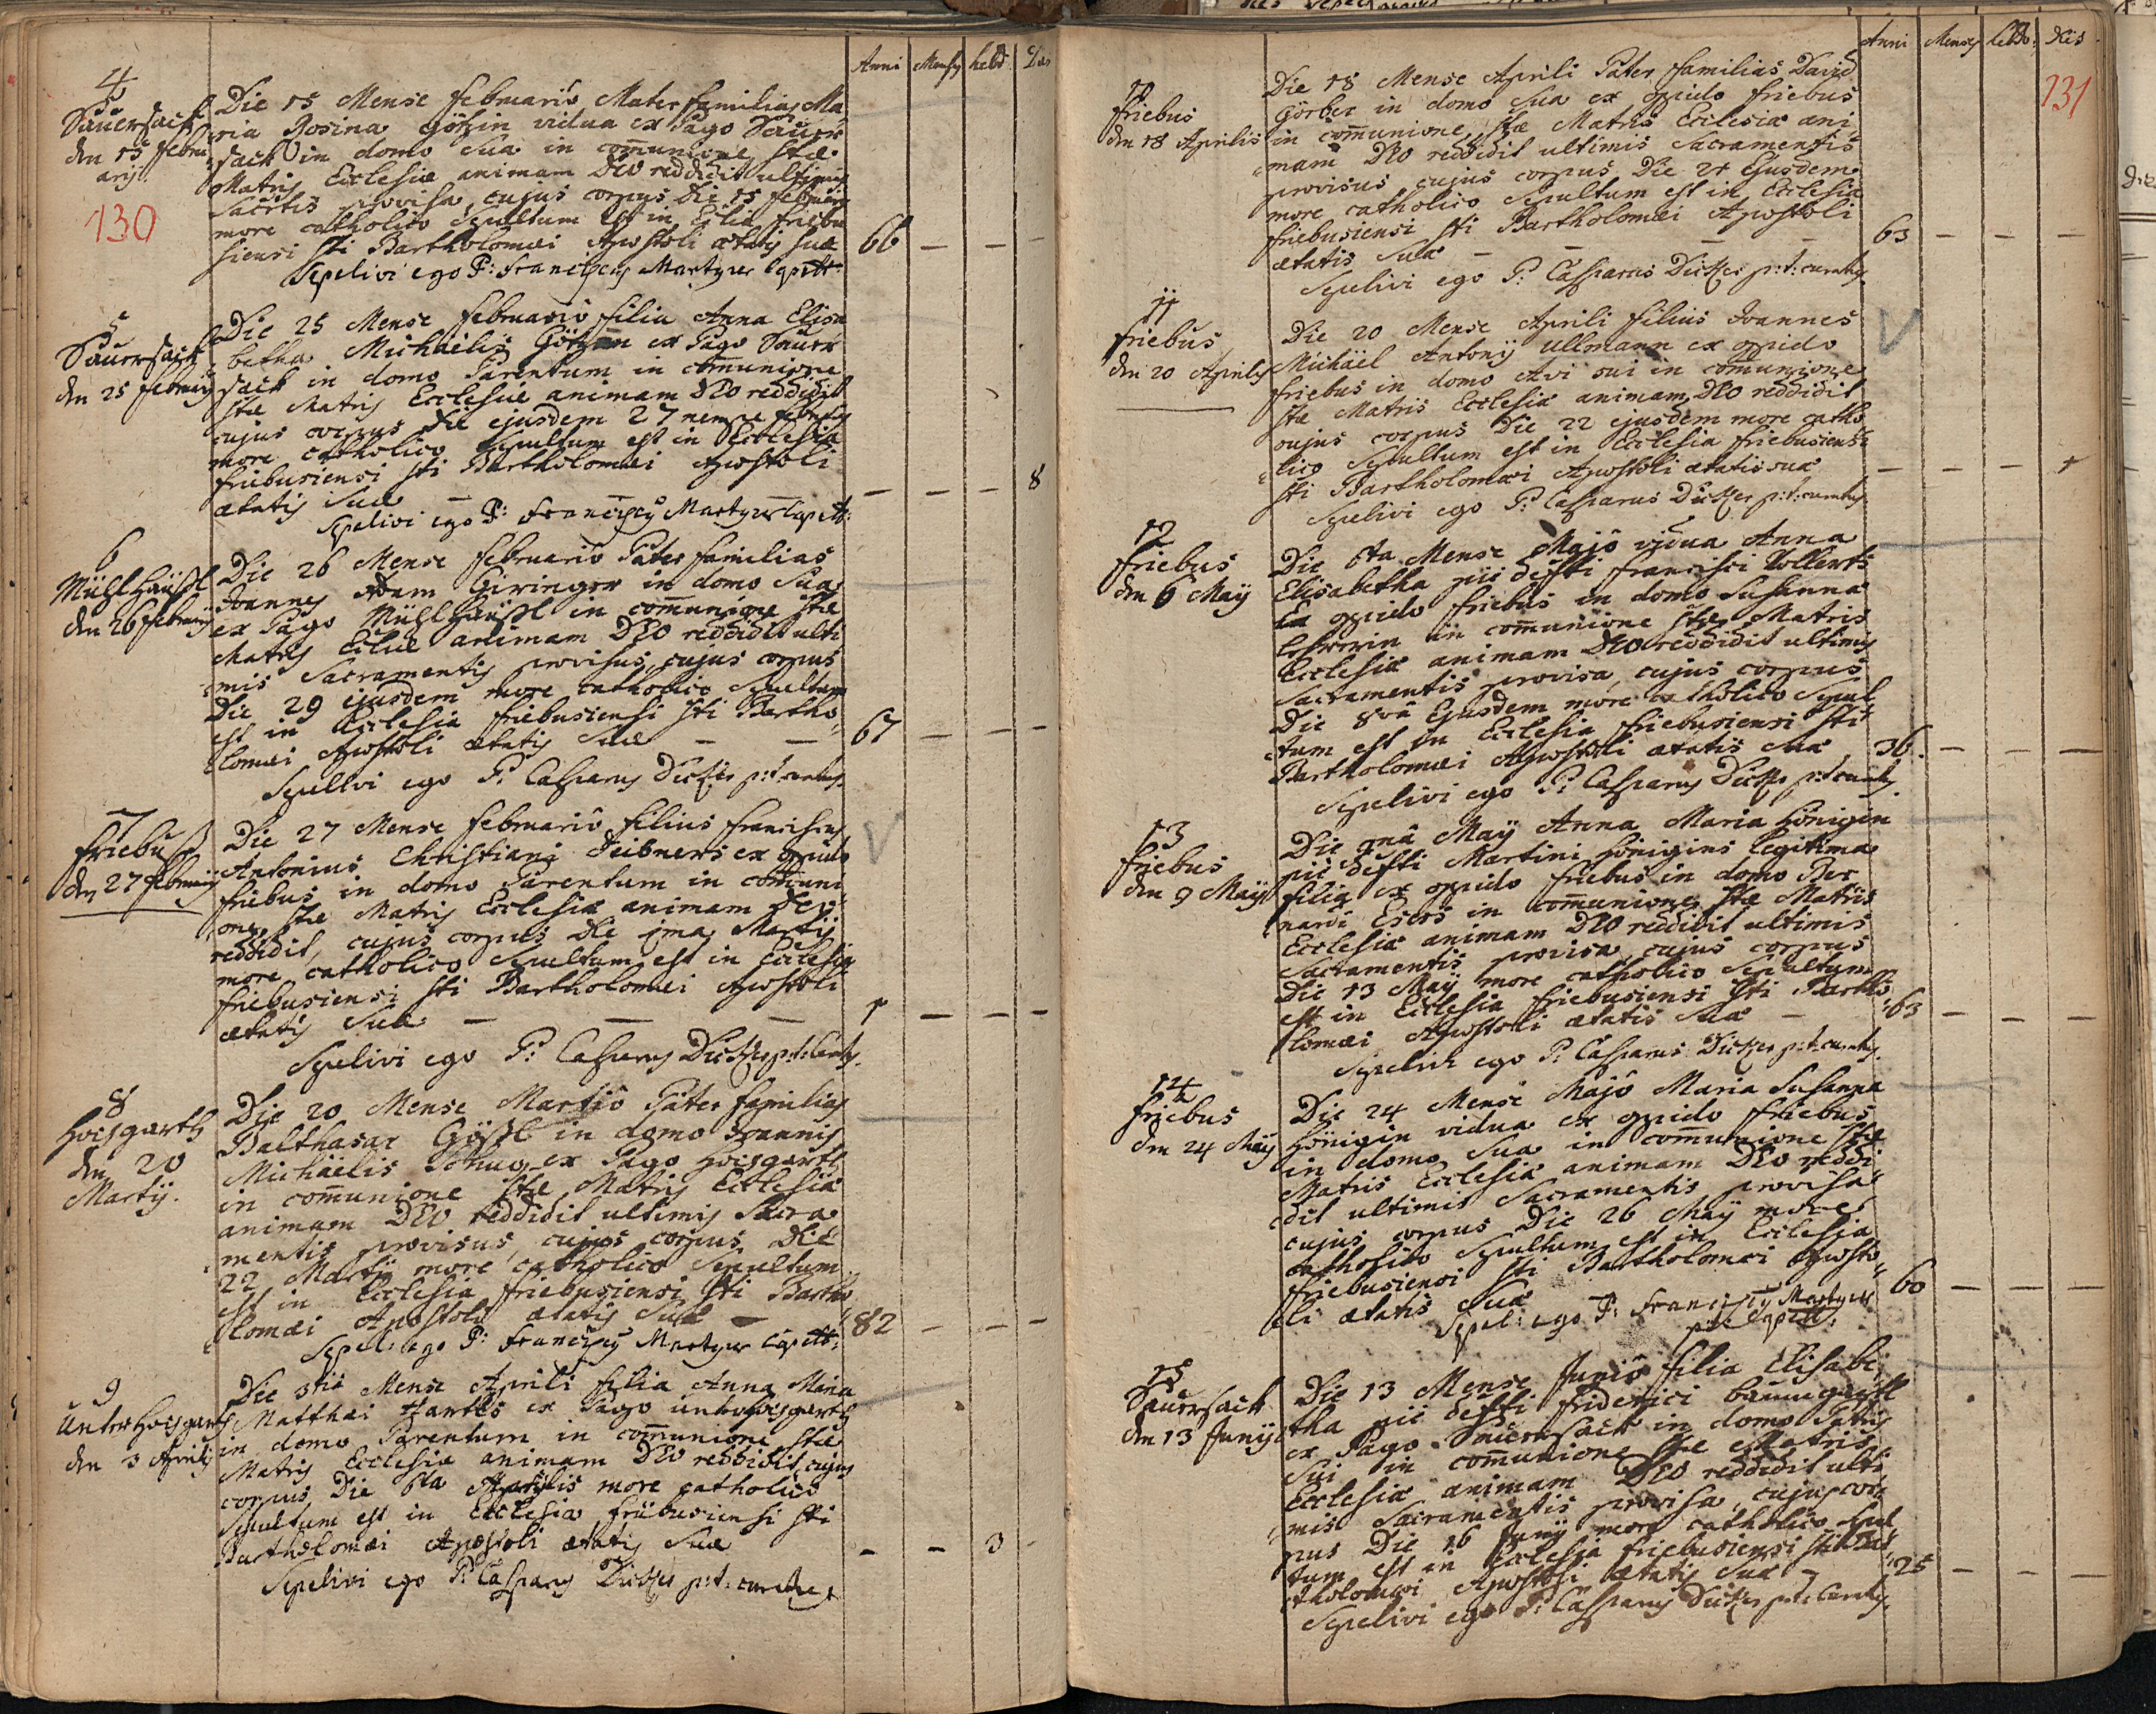 Anni Mens hebd Dies
4
Sauersack
den 15 febru
arij
130
Die 15 Mense februario Mater familias Ma
ria Rosina Götzin vidua ex Pago Sauer
sack in domo sua in comunione stae
Matris Ecclesiae animam DEO reddidit ultimis
Sacrtis provisa, cujus corpus Die 18 februarij
more catholico sepultum est in Eclia friebu
siensi sti Bartholomaei Apostoli aetatis suae 66 — — —
Sepelivi ego P: Franciscus Martyrer
5
Sauersack
den 25 februarij
Die 25 Mense februario filia Anna Elisa
betha Michaelis Götzen ex Pago Sauer
sack in domo Parentum in comunione
stae Matris Ecclesiae animam DEO reddidit
cujus corpus die ejusdem 27 nempe februarij
more catholico sepultum est in Ecclesia
friebusiensi sti Bartholomaei Apostoli
aetatis suae — — — 8
Sepelivi ego P: Franciscus Martyrer
6
Mühlhäusl
den 26 februarij
Die 26 Mense februario Pater familias
Joannes Adam Giringer in domo sua
ex Pago Mühlhäusl in comunione stae
Matris Ecliae animam DEO reddidit ulti
mis Sacramentis provisus, cujus corpus
Die 29 ejusdem more catholico sepultum
est in Ecclesia friebusiensi sti Bartho
lomaei Apostoli aetatis suae — — 67 — — —
Sepelivi ego P: Casparus Dietzer p:t: curatus
7
friebuss
den 27 februarij
Die 27 Mense februario filius franciscus
Antonius Christiani Deibners ex oppido
friebus in domo Parentum in comuni
one stae Matris Ecclesiae animam Deo
reddidit, cujus corpus die 1ma Martij
more catholico sepultum est in Ecclesia
friebusiensi sti Bartholomaei Apostoli
aetatis suae — — — 1 — — —
Sepelivi ego P: Casparus Dietzer p:t: Curatus
8
Hoisgarth
den 20
Martij.
Die 20 Mense Martio Pater familias
Balthasar Gössl in domo Joannis
Michaelis Schug ex Pago Hoisgarth
in comunione stae Matris Ecclesiae
animam DEO reddidit ultimis Sacra
mentis provisus, cujus corpus Die
22 Martij more catholico sepultum
est in Ecclesia friebusiensi sti Bartho
lomaei Apostoli aetatis suae — 82 — — —
Sepel: ego P: Franciscus Martyrer
9
Unterhoisgarth
den 3 Aprilis
Die 3tia Mense Aprili filia Anna Maria
Matthaei Hartls ex Pago unterhoisgarth
in domo Parentum in comunione stae
Matris Ecclesiae animam DEO reddidit, cujus
corpus Die 6ta Aprilis more catholico
sepultum est in Ecclesia friebusiensi sti
Bartholomaei Apostoli aetatis suae — — 3 —
Sepelivi ego P: Casparus Dietzer p:t: curatus
Anni Menses hebdo: dies
131
friebus
den 18 Aprilis
Die 18 Mense Aprili Pater familias David
Görber in domo sua ex oppido friebus
in comunione stae Matris Ecclesiae ani
mam DEO reddidit ultimis Sacramentis
provisus, cujus corpus Die 21 Ejusdem
more catholico sepultum est in Ecclesia
friebusiensi sti Bartholomaei Apostoli
aetatis suae — — — 63 — — —
Sepelivi ego P: Casparus Dietzer p:t: curatus
11
friebus
den 20 Aprilis
Die 20 Mense Aprili filius Joannes
Michael Antonij Ullmann ex oppido
friebus in domo Avi sui in comunione
stae Matris Ecclesiae animam DEO reddidit
cujus corpus Die 22 ejusdem more catho
lico sepultum est in Ecclesia friebusiensi
sti Bartholomaei Apostoli aetatis suae — — — 1
Sepelivi ego P: Casparus Dietzer p:t: curatus
12
friebus
den 6 Maij
Die 6ta Mense Majo vidua Anna
Elisabetha pie defti francisci Kollerts
Ex oppido friebus in domo Susanna
in comunione stae Matris
Ecclesiae animam DEO reddidit ultimis
Sacramentis provisa, cujus corpus
Die 8va Ejusdem more catholico sepul
tum est in Ecclesia friebusiensi sti
Bartholomaei Apostoli aetatis suae 36. — — —
Sepelivi ego P: Casparus Dietzer p:t: curatus
13
friebus
den 9 Maij
Die 9na Maij Anna Maria Hönigin
pie defti Martini Hönigins legitima
filia ex oppido friebus in domo Ber
nardi Esers in comunione stae Matris
Ecclesiae animam DEO reddidit ultimis
Sacramentis provisa, cujus corpus
Die 13 Maij more catholico sepultum
est in Ecclesia friebusiensi sti Bartho
lomaei Apostoli aetatis suae — 63 — — —
Sepelivi ego P: Casparus Dietzer p:t: curatus
14
friebus
den 24 Maij
Die 24 Mense Majo Maria Susanna
Hönigin vidua ex oppido friebus
in domo sua in comunione stae
Matris Ecclesiae animam DEO reddi
dit ultimis Sacramentis provisa
cujus corpus Die 26 Maij more
catholico sepultum est in Ecclesia
friebusiensi sti Bartholomaei Aposto
li aetatis suae 60 — — —
Sepel: ego P: Franciscus Martyrer
15
Sauersack
den 13 Junij
Die 13 Mense Junio filia Elisabe
tha pie defti friderici baumgartl
ex Pago Sauersack in domo Patris
sui in comunione stae Matris
Ecclesiae animam DEO reddidit ulti
mis Sacramentis provisa, cujus cor
pus Die 16 Junij more catholico sepul
tum est in Ecclesia friebusiensi sti Bar
tholomaei Apostoli aetatis suae — 25 — — —
Sepelivi ego P: Casparus Dietzer p:t: Curatus